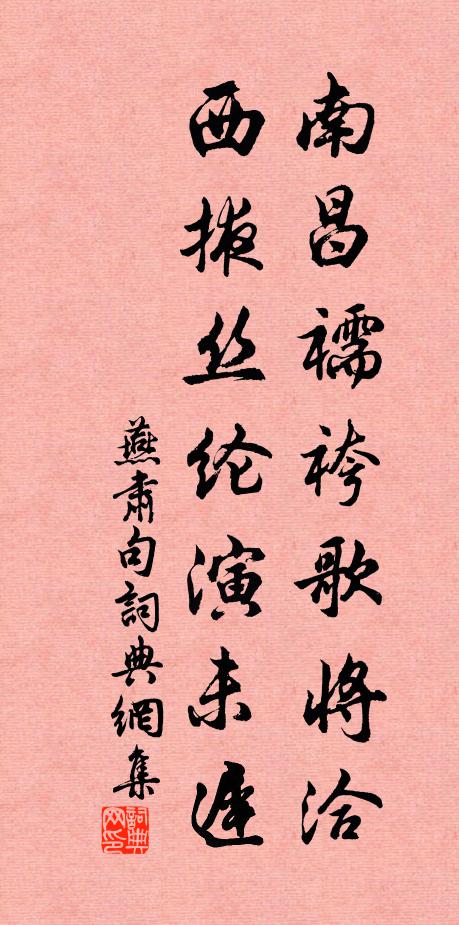 南昌襦袴歌将洽
西掖丝纶演未迟
燕肅句詞典網集
詞典网印